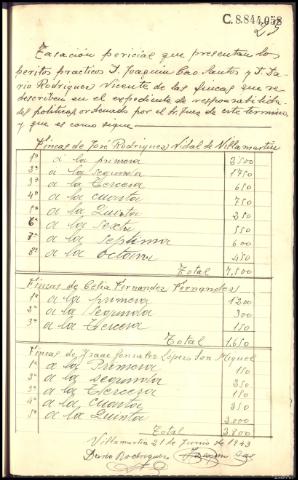 C.8.844,058
Tasación pericial que presentan los
peritos practicos D. Joaquin Cao Santos y D. Da
rio Rodriguez Vicente de las fincas que se
describen en el expediente de responsabilida
des politicas, ordenado por el Sr. Juez de este termino
y que es como sigue
Fincas de José Rodriguez Vidal de Villamartin
1ª a la primera
2ª a la segunda 1750
3ª a la tercera 650
4ª a la cuarta 750
5ª a la Quinta 250
6ª a la sexta 550
7ª a la septima 600
8ª a la octava 450
Total 7,500
Fincas de Celia Fernandez Fernandez
1ª a la primera 1200
2ª a la segunda 300
3ª a la tercera 150
Total 1.650
Fincas de Isaac Gonzalez Lopez San Miguel
1ª a la Primera
2ª a la segunda 350
3ª a la tercera 110
4ª a la cuarta 250
5ª a la Quinta 2.000
Total
Villamartin 21 de Junio de 1943
Dario Rodriguez Joaquin Cao